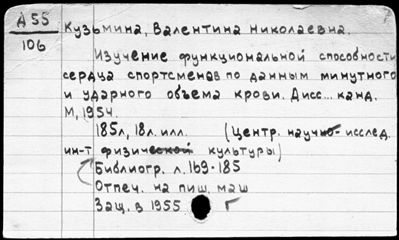 Д 55
106
Кузьмина, Валентина Николаевна.
Изучение функциональной способности
сердца спортсменов по данным минутного
и ударного объема крови. Дисс... канд.
М, 1954.
185л, 18л. илл. (Центр. научно- исслед.
ин-т физической культуры)
Библиогр. л. 169-185
Отпеч. на пиш. маш
Защ. в 1955 г